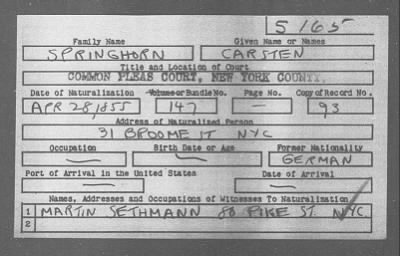 5165
Family Name Given Name or Names
SPRINGHORN CARSTEN
Title and Location of Court
COMMON PLEAS COURT, NEW YORK COUNTY.
Date of Naturalization Volume or Bundle No. Page No. Copy of Record No.
APR 28, 1855 147 — 93
Address of Naturalized Person
31 BROOME ST NYC
Occupation Birth Date or Age Former Nationality
— — GERMAN
Port of Arrival in the United States Date of Arrival
— —
Names, Addresses and Occupations of Witnesses To Naturalization
1 MARTIN SETHMANN 80 PIKE ST. NYC
2